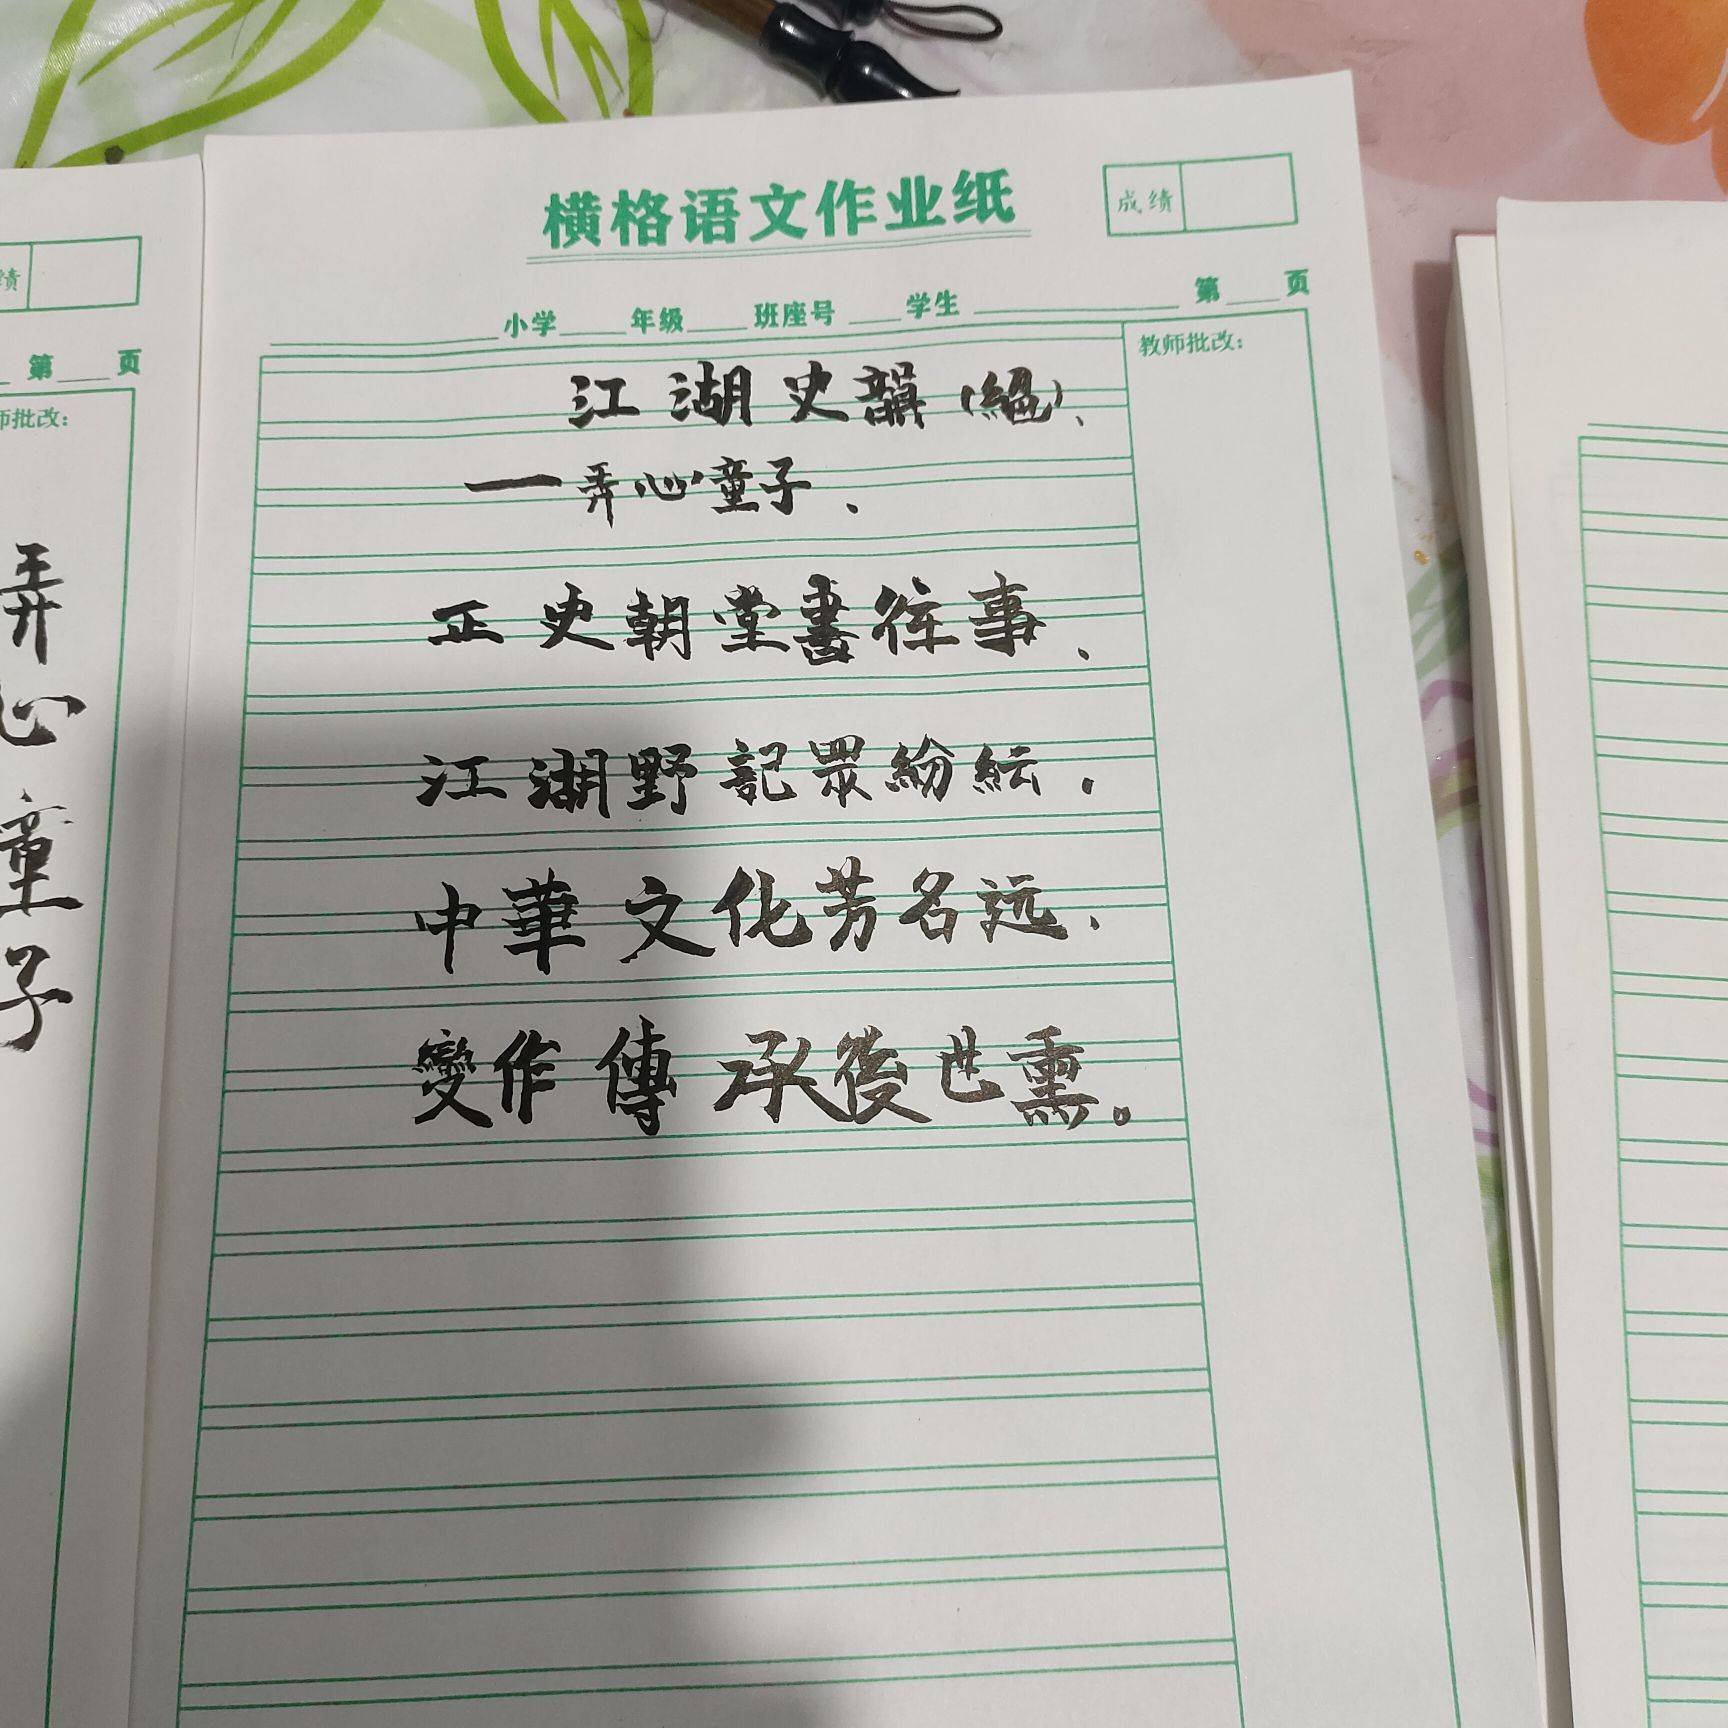 横格语文作业纸
成绩
小学 年级 班座号 学生 第 页
教师批改:
江湖史韻
一弄心童子、
正史朝堂書往事、
江湖野記眾紛紜,
中華文化芳名远,
變作傳承後世熏。
绩
第 页
师批改:
弄心童子